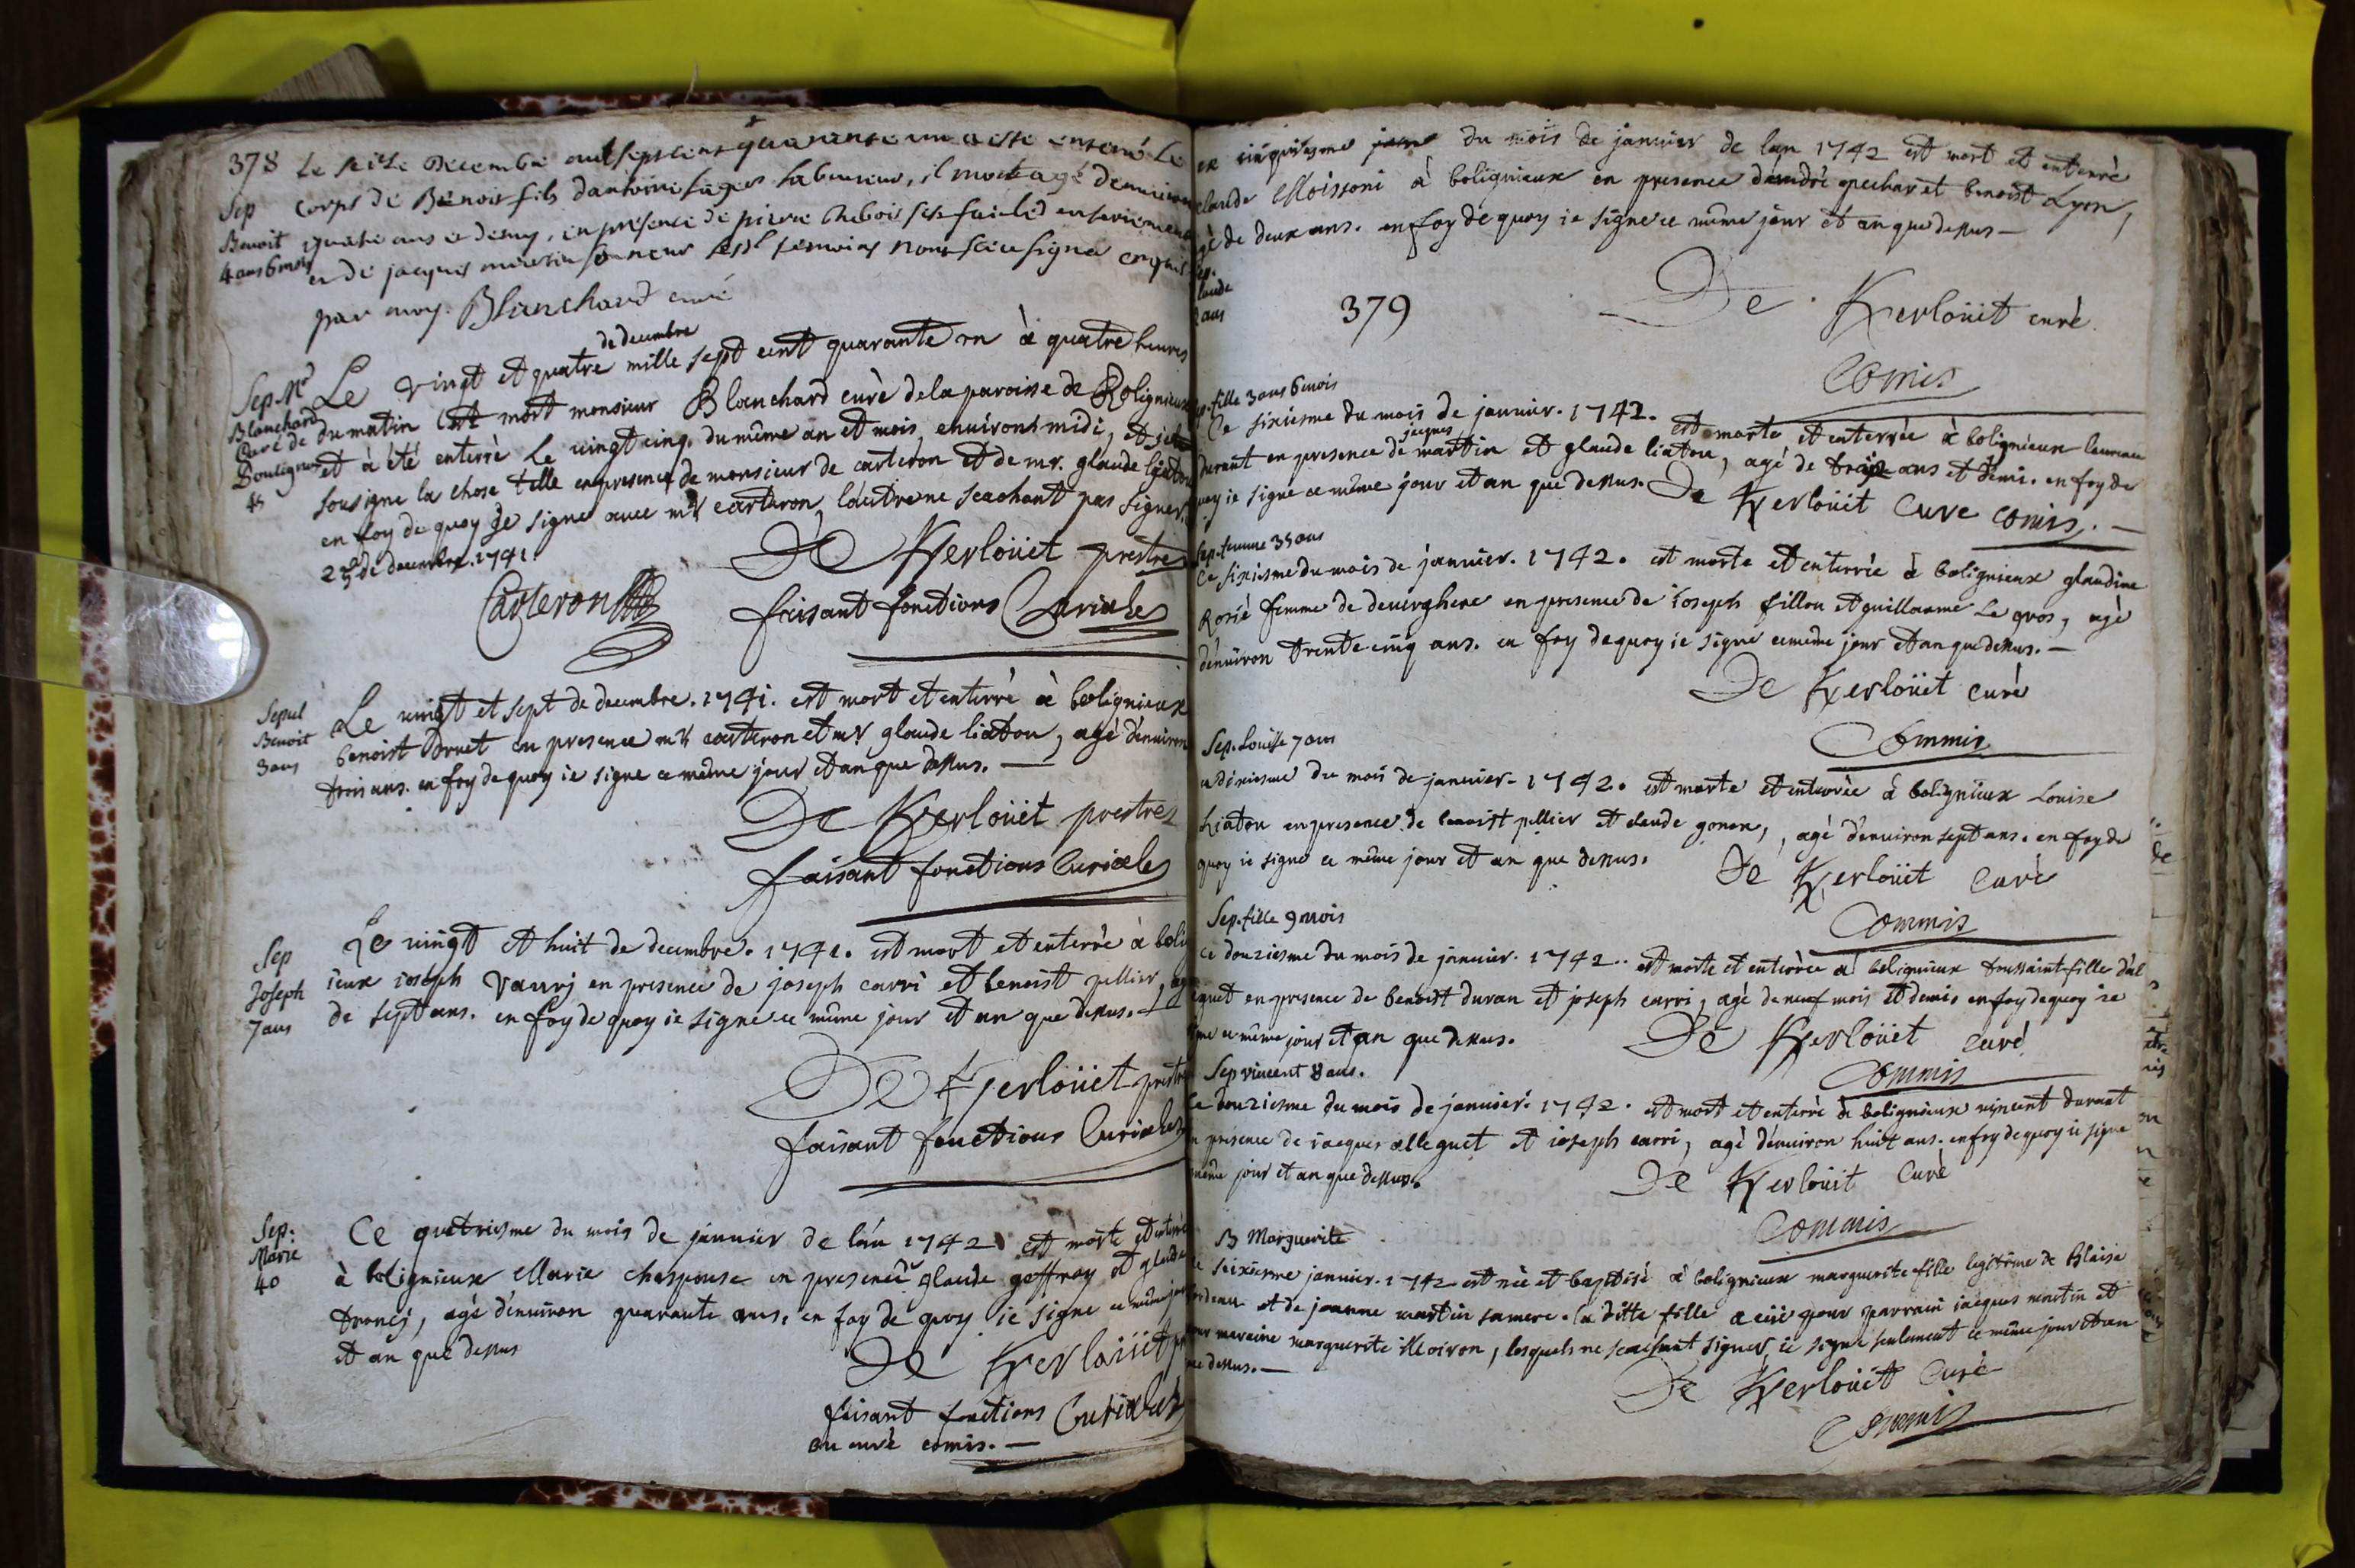 378
Le seize Decembre mil sept cent quarante un a esté enterré Le
corps de Benoist fils d'antoine laboureur, il mort agé denuiron
quatre ans et demy, en presence de pierre
et de jacques sonneur temoins non sceu signer enquis
par moy. Blanchard curé
Sep
Benoit
4 ans 6 mois
Sep. Mr
Blanchard
Curé de
Bouligneux
45
de decembre
Le vingt et quatre mille sept cent quarante vn à quatre heures
du matin est mort monsieur Blanchard curé de la paroisse de Bolignieux
et à été enterré Le vingt cinq du même an et mois, enuiront midi, et je
sousigne la chose telle en presence de monsieur de carteron et de mr. glaude liaton
en foy de quoy je signe auec mr carteron, l'autre ne scachant pas signer.
25 de decembre. 1741.
De Kerloüet prestre
Carteron
faisant fonctions Curiales
Sepul
Benoit
3 ans
Le vingt et sept de decembre. 1741. est mort et enterré à bolignieux
benoist Druet en presence mr carteron et mr glaude liaton, agé d'enuiron
trois ans. en foy de quoy ie signe ce même jour et an que dessus. —
De Kerloüet prestre
faisant fonctions Curiales
Sep
Joseph
7 ans
Le vingt et huit de decembre. 1741. est mort et enterré à bolig
ieux ioseph Vaurj en presence de joseph carri et benoist pellier, agé
de sept ans. en foy de quoy ie signe ce même jour et an que dessus. —
De Kerloüet prestre
faisant fonctions Curiales
Sep:
Marie
40
Ce quatriesme du mois de januier de l'an 1742 est morte et enterré
à bolignieux Marie chaspouse en presence glaude geoffray et glaude
trancj, agé d'enuiron quarante ans, en foy de quoy ie signe ce même jour
et an que dessus
De Kerloüet
faisant fonctions Curiales
ou curé comis. —
ce cinquiesme jour du mois de januier de lan 1742 est mort et enterré
claude Moissoni à bolignieux en presence d'andré pechar et benoist Lyon,
gé de deux ans. en foy de quoy ie signe ce même jour et an que dessus —
Sep.
laude
2 ans
379
De Kerloüet curé
Comis
Sep. fille 3 ans 6 mois
Ce sixiesme du mois de januier. 1742. est morte et enterrée à bolignieux
jacques
durant en presence de martin et glaude liaton, agé de trois ans et demi. en foy de
quoy ie signe ce même jour et an que dessus. De Kerloüet Curé comis. —
Sep. femme 35 ans
Ce sixiesme du mois de januier. 1742. est morte et enterrée à bolignieux glaudine
Rosié femme de deuerghere en presence de ioseph fillon et guillaume Le gros, agé
d'enuiron trente cinq ans. en foy de quoy ie signe ce même jour et an que dessus. —
De Kerloüet curé
Commis
Sep. Louise 7 ans
ce dixiesme du mois de januier. 1742. est morte et enterrée à bolignieux Louise
Liaton en presence de benoist pellier et claude gonon, agé d'enuiron sept ans. en foy de
quoy ie signe ce même jour et an que dessus.
De Kerloüet Curé
Commis
Sep. fille 9 mois
Ce douziesme du mois de januier. 1742. est morte et enterrée à bolignieux toussaint fille d'al
eguet en presence de benoist duran et joseph carri, agé de neuf mois et demi. en foy de quoy ie
signe ce même jour et an que dessus.
De Kerloüet curé
Commis
Sep vincent 8 ans.
Ce douziesme du mois de januier. 1742. est mort et enterré à bolignieux vincent durant
en presence de iacques alleguet et ioseph carri, agé d'enuiron huit ans. en foy de quoy ie signe
même jour et an que dessus.
De Kerloüet Curé
Commis
B Marguerite
Le seiziesme januier. 1742 est née et baptisé à bolignieux marguerite fille legitime de Blaise
et de jeanne martin sa mere. la ditte fille a eüe pour parrain iacques martin et
pour maraine marguerite Moiron, lesquels ne scachant signer ie signe seulement ce même jour et an
que dessus. —
De Kerloüet Curé
Commis